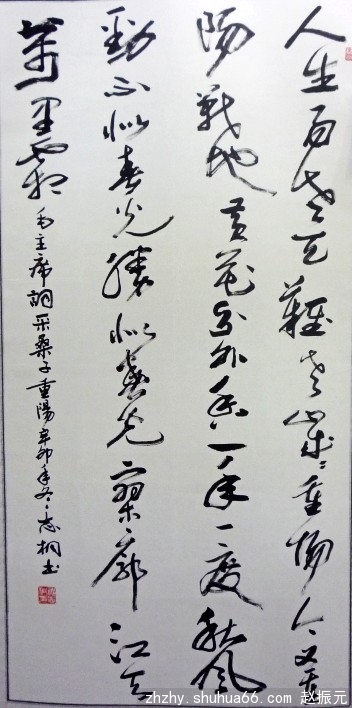 人生易老天難老歲々重陽今又重
陽戰地黃花分外香一年一度秋風
勁不似春光勝似春光寥廓江天
萬里霜 毛主席詞采桑子重陽辛卯年冬志桐书
zhzhy.shuhua66.com 赵振元